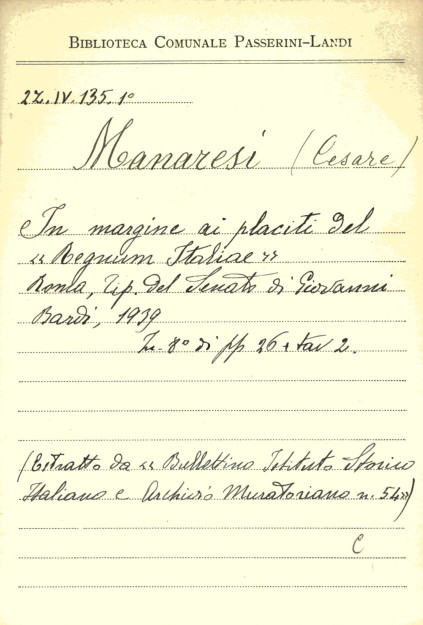 BIBLIOTECA COMUNALE PASSERINI-LANDI
2Z.IV.135.1º
Manaresi (Cesare)
In margine ai placiti del
«Regnum Italiae»
Roma, Tip. del Senato di Giovanni
Bardi, 1939
In-8º di pp 26 + tav 2.
(Estratto da «Bullettino Istituto Storico
Italiano e Archivio Muratoriano n. 54»)
C